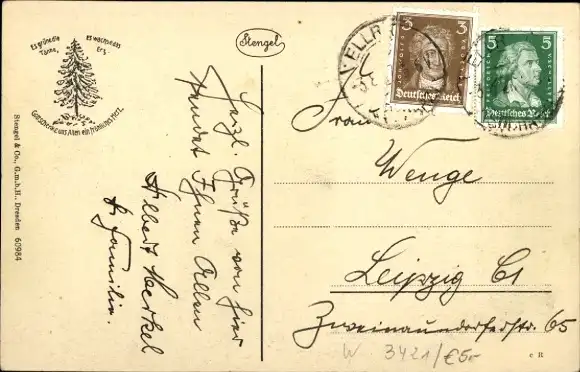 Es grüne die Tanne,
es wachse das Erz.
Gott schenke uns Allen ein fröhliches Herz.
Stengel & Co., G.m.b.H., Dresden 60984
Stengel
Herzl. Grüße von hier
sendet Ihnen Allen
Albert Merkel
& Familie.
ELLR
3 3
Deutsches Reich
5 5
Deutsches Reich
Frau
Wenge
Leipzig C1
Zweinaundorferstr. 65
W 3421/€5-
c R